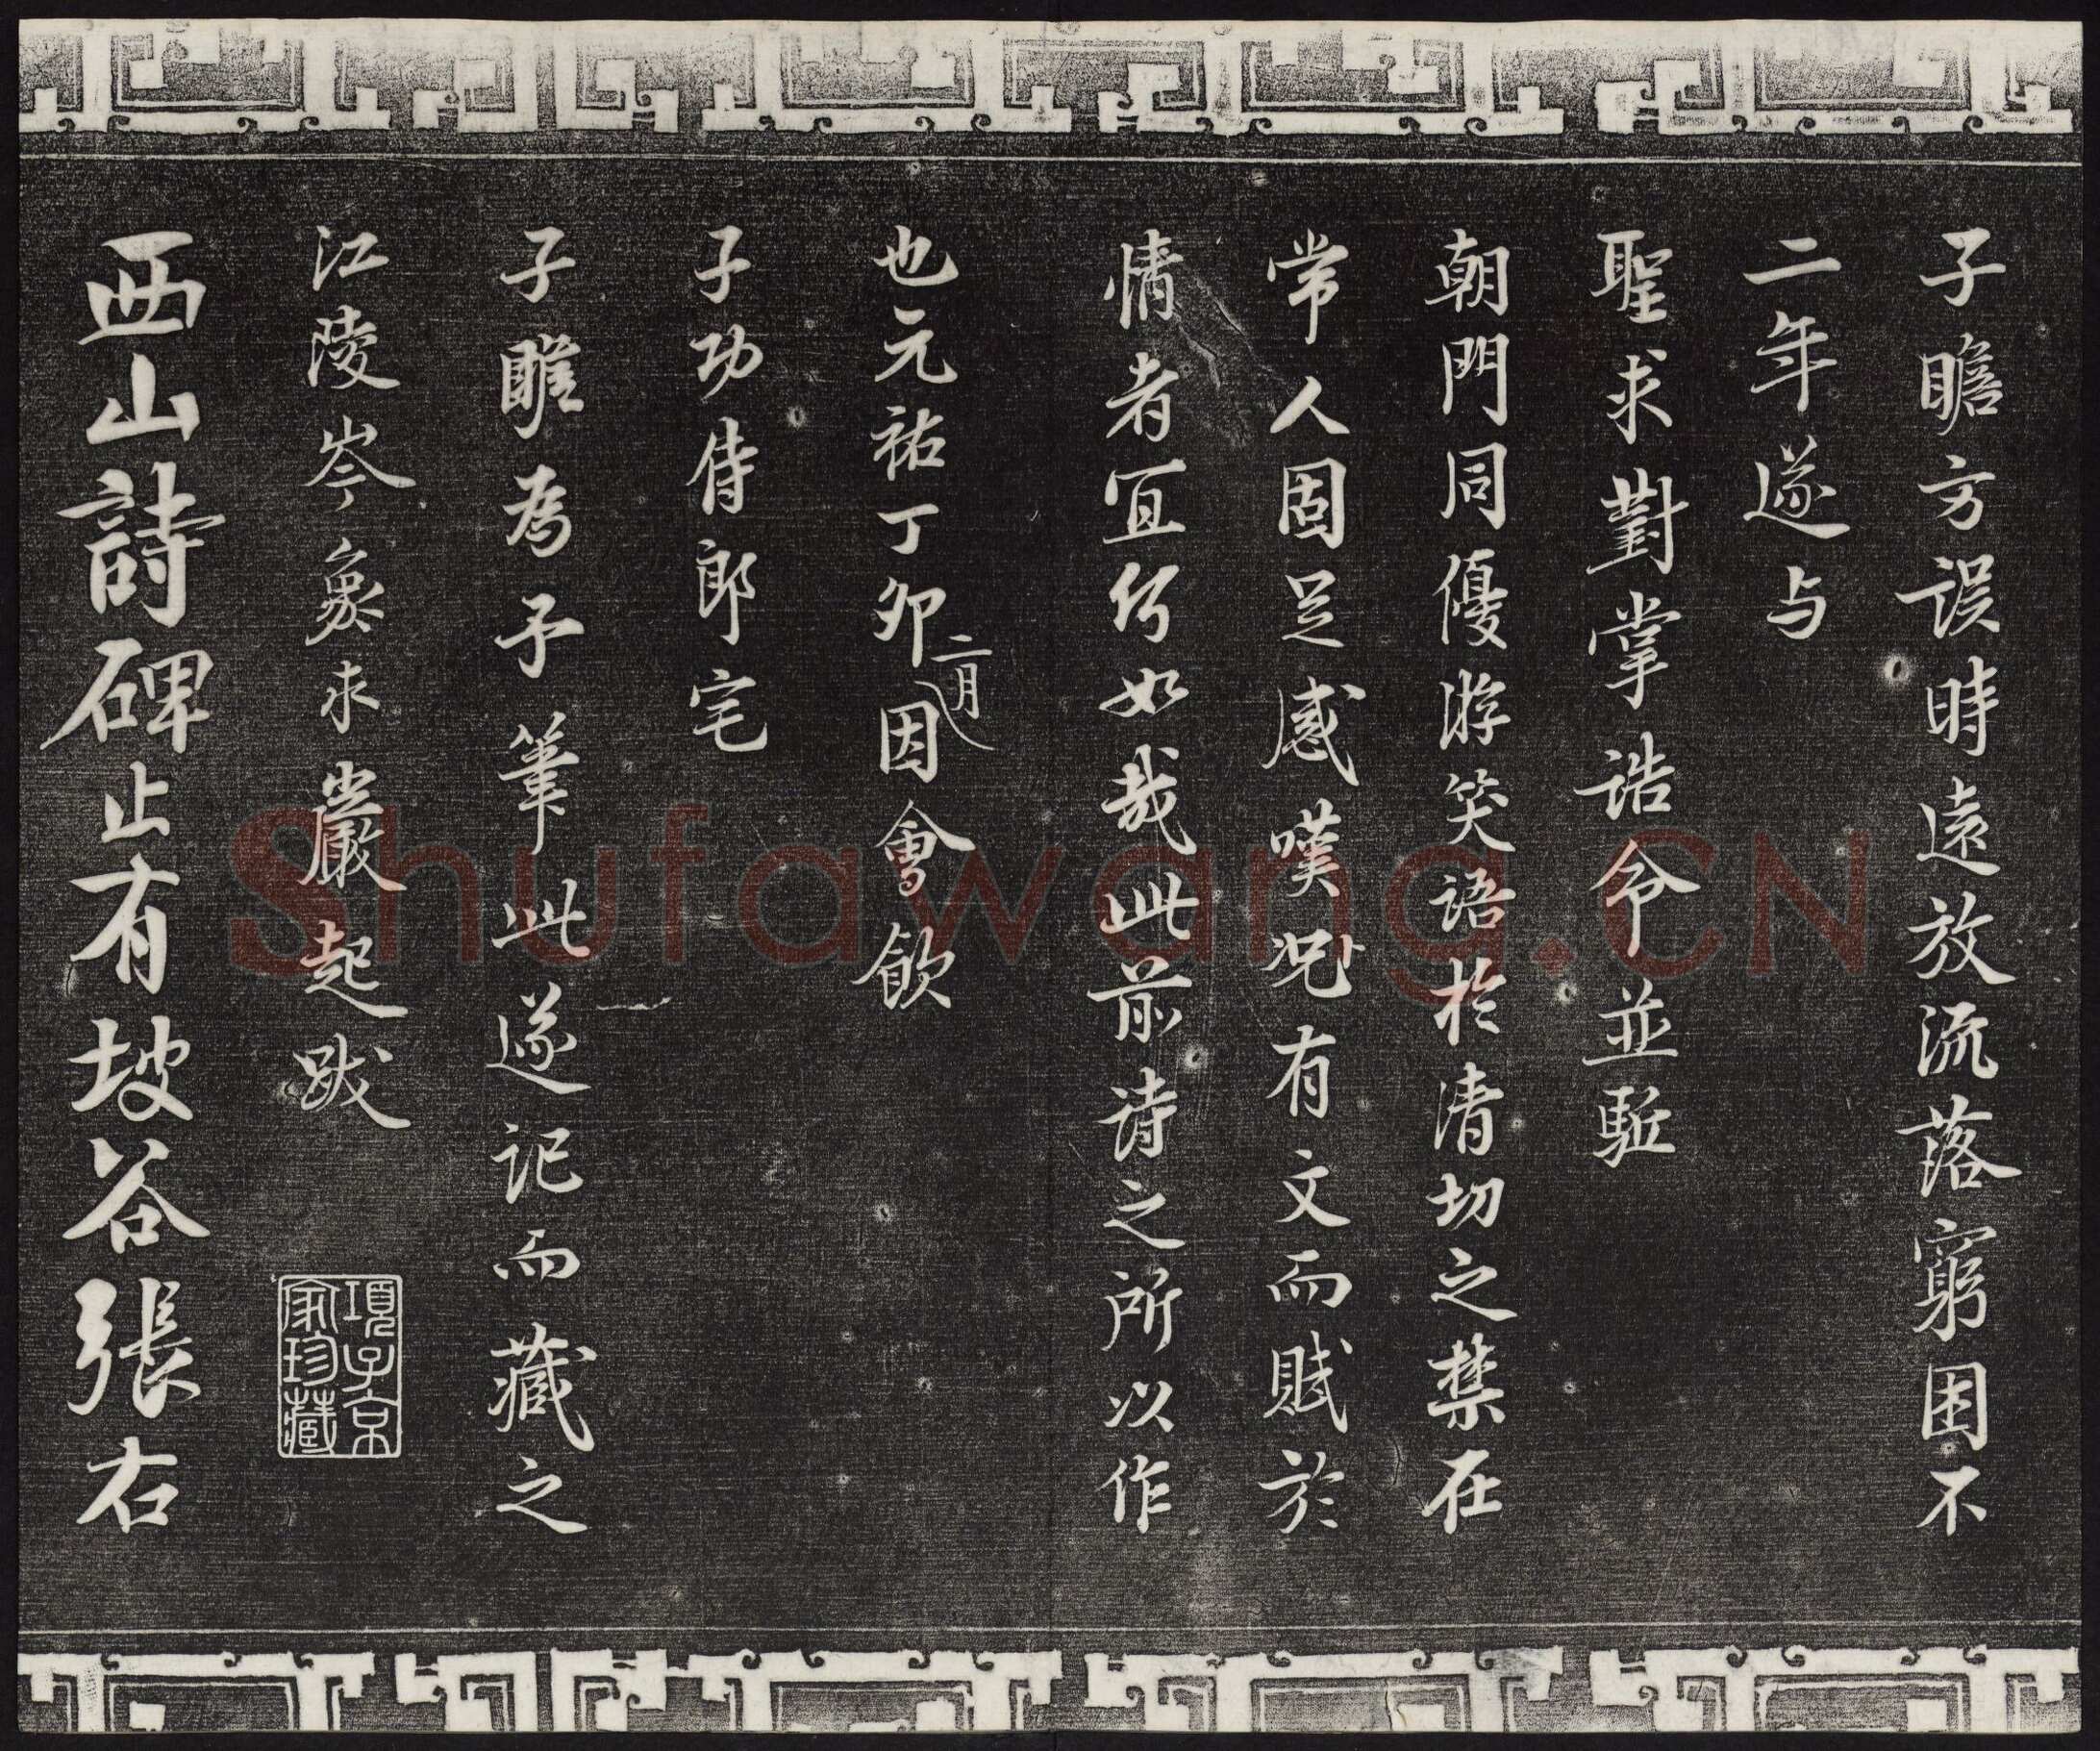 子瞻方误時遠放流落窮困不
二年遂与
聖求對掌誥令並駈
朝門同優游笑語於清切之禁在
常人固足感嘆况有文而賦於
情者宜何如哉此前诗之所以作
也元祐丁卯二月因會飲
子功侍郎宅
子瞻為予筆此遂记而藏之
江陵岑象求嚴起跋
項子京家珍藏
西山詩碑止有坡谷張右
Shufawang.CN